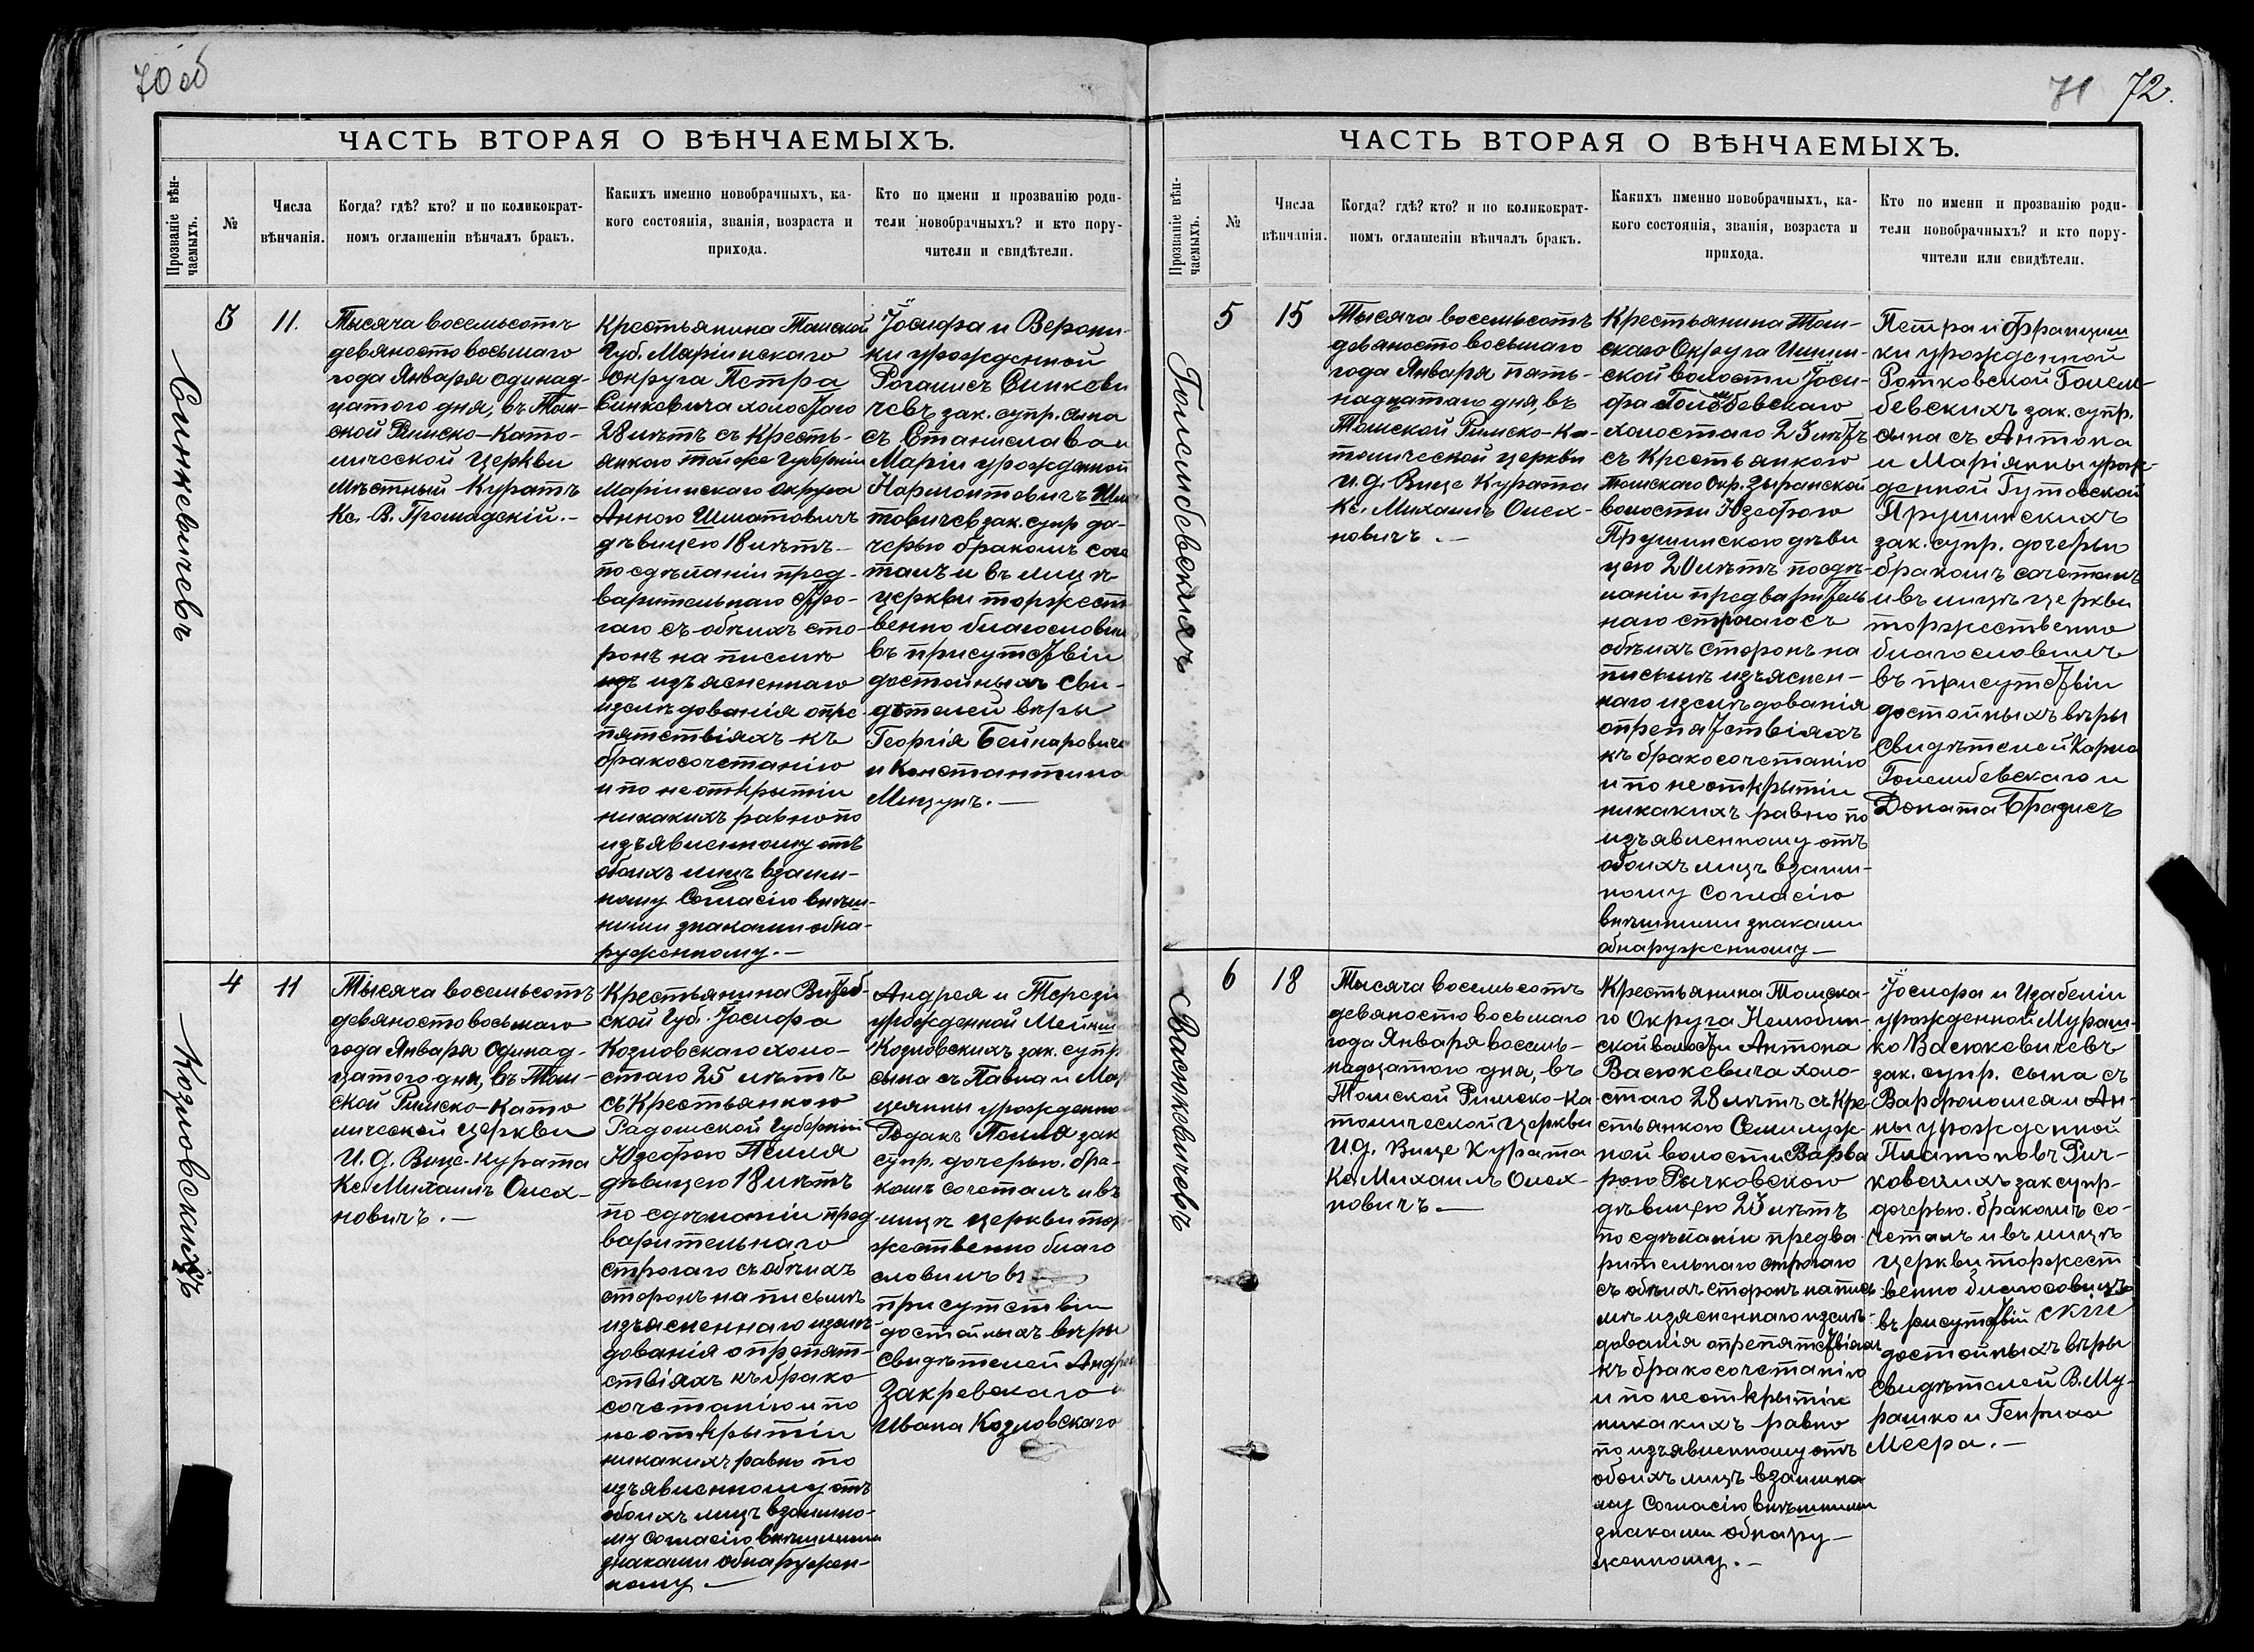 70 об
ЧАСТЬ ВТОРАЯ О ВѢНЧАЕМЫХЪ.
Прозваніе вѣн-
чаемыхъ.
№
Числа
вѣнчанія.
Когда? гдѣ? кто? и по коликократ-
номъ оглашеніи вѣнчалъ бракъ.
Какихъ именно новобрачныхъ, ка-
кого состоянія, званія, возраста и
прихода.
Кто по имени и прозванію роди-
тели новобрачныхъ? и кто пору-
чители и свидѣтели.
Синкевичевъ
3
11.
Тысяча восемьсотъ
девяносто восьмаго
года Января одинад-
цатого дня, въ Том-
ской Римско-Като-
лической Церкви
мѣстный Куратъ
Кс. В. Громадскій.-
Крестьянина Томской
Губ. Маріинскаго
округа Петра
Синкевича холостаго
28 лѣтъ съ Кресть-
янкою той же Губерніи
Маріинскаго Округа
Анною Шматовичъ
дѣвицею 18 лѣтъ-
по сдѣланіи пред-
варительнаго стро-
гаго съ обѣихъ сто-
ронъ на письмѣ
изъясненнаго
изслѣдованія о пре-
пятствіяхъ къ
бракосочетанію
и по не открытіи
никакихъ равно по
изъявленному отъ
обоихъ лицъ взаим-
ному Согласію внѣш-
ними знаками обна-
руженному.-
Іосифа и Верони-
ки урожденной
Рогалисъ Синкеви
чевъ зак. супр. сына
съ Станислава и
Маріи урожденной
Нармонтовичъ Шма
товичев зак. супр до-
черью бракомъ соче
талъ и въ лицѣ
церкви торжест
венно благословилъ
въ присутствіи
достойныхъ сви-
дѣтелей вѣры
Георгія Бейнаровича
и Константина
Мицунъ.-
Козловскихъ
4
11
Тысяча восемьсотъ
девяносто восьмаго
года Января Одинад-
цатого дня, въ Том-
ской Римско-Като
лической церкви
И. д. Вице-Курата
Кс. Михаилъ Олех-
новичъ.-
Крестьянина Витеб-
ской Губ. Іосифа
Козловскаго холо-
стаго 25 лѣтъ
съ Крестьянкою
Радомской Губерніи
Юзефою Пелля
дѣвицею 18 лѣтъ
по сдѣланіи пред
варительнаго
строгаго съ обѣихъ
сторонъ на письмѣ
изъясненнаго изслѣ-
дованія о препят-
ствіяхъ къ брако
сочетанію и по
не открытіи
никакихъ равно по
изъявленному отъ
обоихъ лицъ взаимно-
му Согласію внѣшними
знаками обнаружен-
ному -
Андрея и Терезіи
урожденной
Козловскихъ зак. супр
сына съ Павла и Мар
цеянны урожденно
Родакъ зак
супр. дочерью. бра-
комъ сочеталъ и въ
лицѣ церкви тор-
жественно благо
словилъ въ
присутствіи
достойныхъ вѣры
Свидѣтелей Андрея
Закревскаго и
Ивана Козловскаго
71 72.
ЧАСТЬ ВТОРАЯ О ВѢНЧАЕМЫХЪ.
Прозваніе вѣн-
чаемыхъ.
№
Числа
вѣнчанія.
Когда? гдѣ? кто? и по коликократ-
номъ оглашеніи вѣнчалъ бракъ.
Какихъ именно новобрачныхъ, ка-
кого состоянія, званія, возраста и
прихода.
Кто по имени и прозванію роди-
тели новобрачныхъ? и кто пору-
чители или свидѣтели.
Голембевскихъ
5
15
Тысяча восемьсотъ
девяносто восьмаго
года Января пять-
надцатаго дня, въ
Томской Римско-Ка-
толической церкви
И. д. Вице Курата
Кс. Михаилъ Олех-
новичъ.-
Крестьянина Том-
скаго Округа Ишим-
ской волости Іоси-
фа Голембевскаго
холостаго 23 лѣтъ
съ Крестьянкою
Томскаго Окр. Зырянской
волости Юзефою
Прушинскою дѣви
цею 20 лѣтъ по сдѣ-
ланіи предваритель
наго строгаго съ
обѣихъ сторонъ на
письмѣ изъяснен-
наго изслѣдованія
о препятствіяхъ
къ бракосочетанію
и по не открытіи
никакихъ равно по
изъявленному отъ
обоихъ лицъ взаим-
ному Согласію
внѣшними знаками
обнаруженному-
Петра и Францишки
ки урожденной
Ротковской Голем-
бевскихъ зак. супр.
сына съ Антона
и Маріянны урож-
денной Гутовской
Прушинскихъ
зак. супр. дочерью
бракомъ сочеталъ
и въ лицѣ церкви
торжественно
благословилъ
въ присутствіи
достойныхъ вѣры
Свидѣтелей Карла
Голембевскаго и
Доната Бразисъ
Васюковичевъ
6
18
Тысяча восемьсотъ
девяносто восьмаго
года Января восемь-
надцатого дня, въ
Томской Римско-Ка
толической Церкви
И.д. Вице Курата
Кс Михаилъ Олех-
новичъ.-
Крестьянина Томска-
го Округа Нелюбин-
ской волости Антона
Васюкевича холо-
стаго 28 лѣтъ съ Кре
стьянкою Семилуж-
ной волости Варва
рою Рычковскою
дѣвицею 23 лѣтъ
по сдѣланіи предва
рительнаго строгаго
съ обѣихъ сторонъ на пись
мѣ изясненнаго изслѣ-
дованія о препятствіяхъ
къ бракосочетанію
и по не открытіи
никакихъ равно
по изъявленному отъ
обоихъ лицъ взаимно
му Согласію внѣшними
знаками обнару-
женному.-
Іосифа и Изабеліи
урожденной Мураш-
ко Васюкевичевъ
зак. супр. сына съ
Варфоломея и Ан-
ны урожденной
Платоновъ Рич-
ковскихъ зак супр-
дочерью. бракомъ со-
четалъ и въ лицѣ
церкви торжест
венно благословилъ
въ рисутствіи
достойныхъ вѣры
Свидѣтелей В. Му-
рашко и Генриха
Меера.-